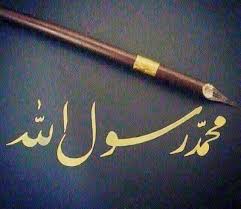 محمّد رسول الله